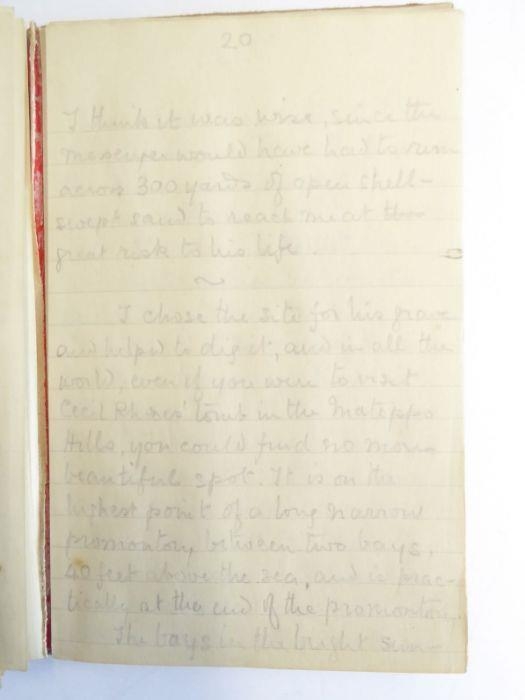 20
I think it was wise, since the
messenger would have had to run
across 300 yards of open shell-
swept sand to reach me at the
great risk to his life.
~
I chose the site for his grave
and helped to dig it, and in all the
world, even if you were to visit
Cecil Rhodes' tomb in the Matoppo
Hills, you could find no more
beautiful spot. It is on the
highest point of a long narrow
promontory between two bays,
40 feet above the sea, and is prac-
tically at the end of the promontory.
The bays in the bright sun-